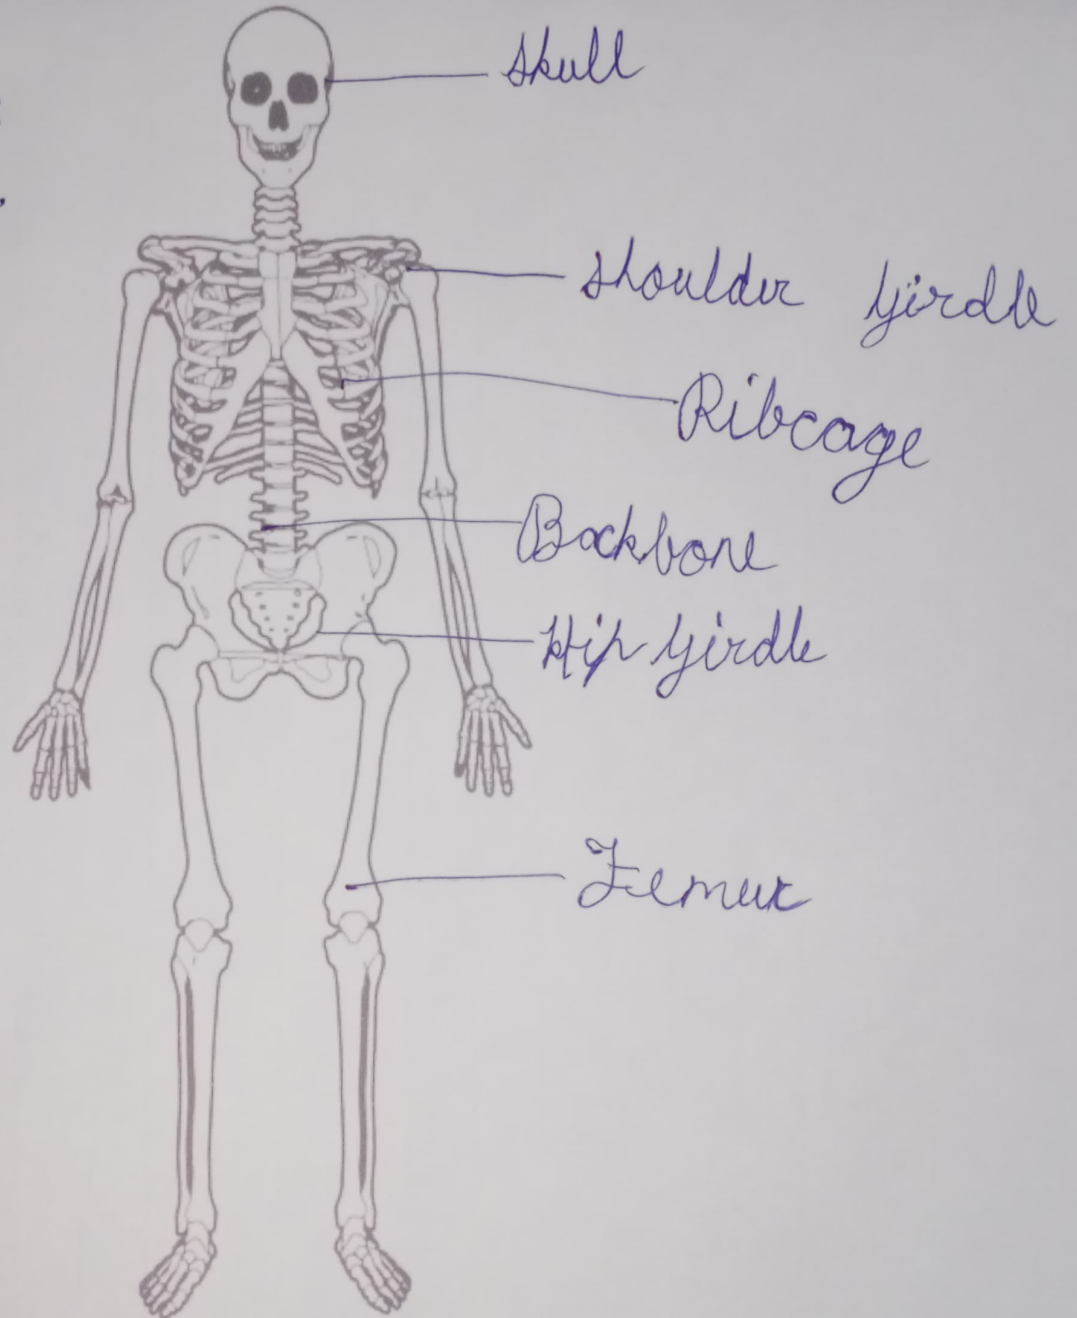 Skull
Shoulder Girdle
Ribcage
Backbone
Hip Girdle
Femur